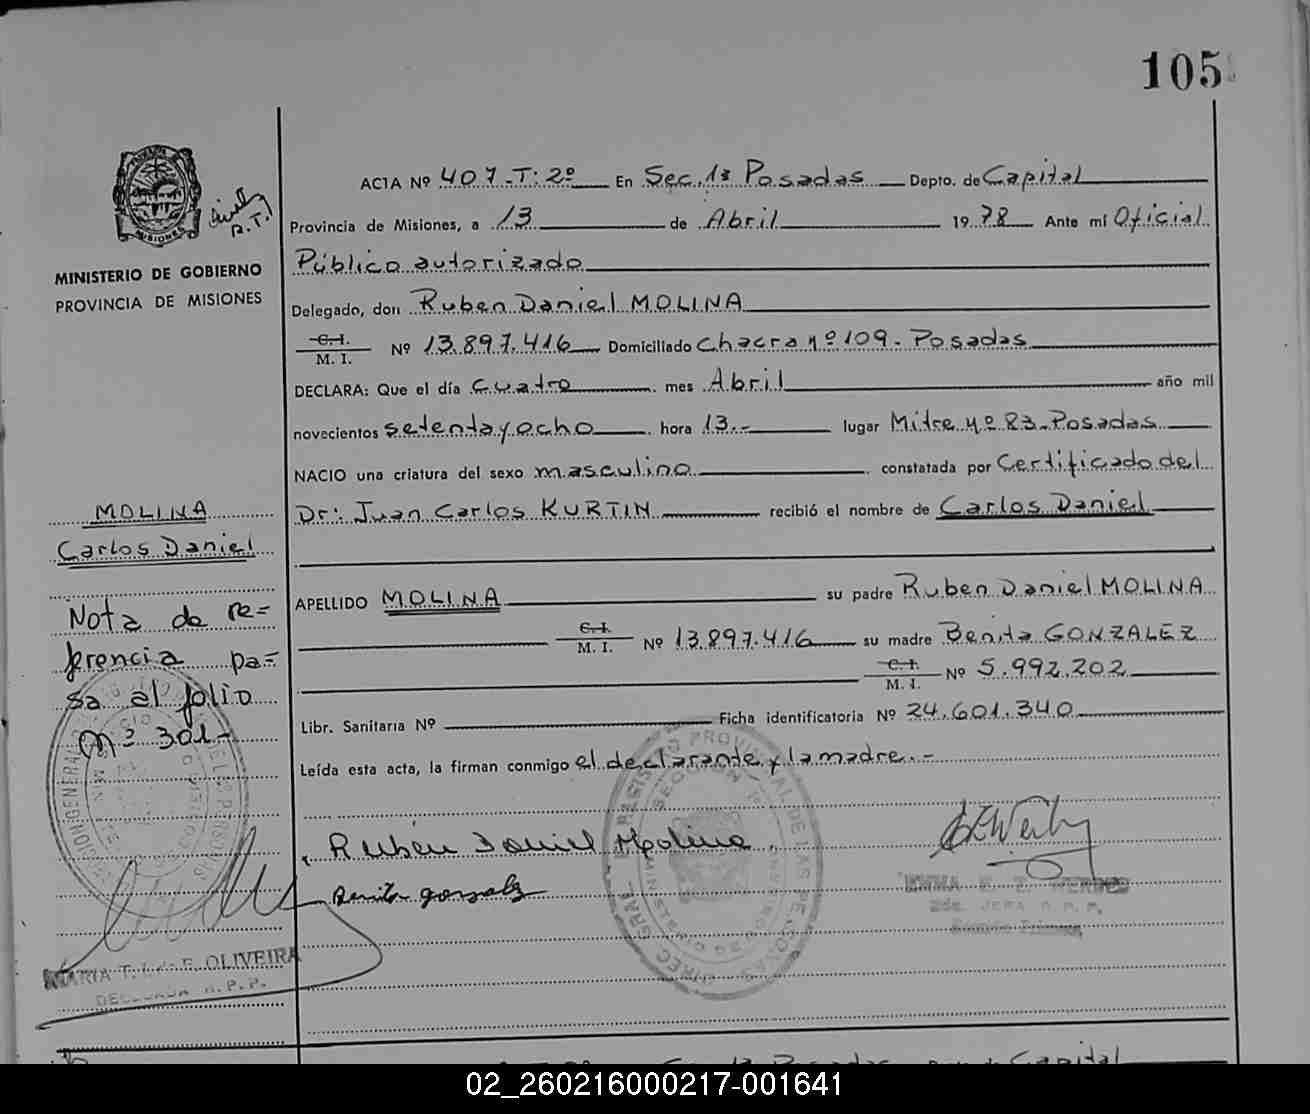 105
ACTA Nº 407-T: 2º En Sec. 1ª Posadas Depto. de Capital
Provincia de Misiones, a 13 de Abril 1978 Ante mí Oficial
Público autorizado
MINISTERIO DE GOBIERNO
PROVINCIA DE MISIONES
MISIONES
Delegado, don Ruben Daniel MOLINA
C.I.
M. I. Nº 13.897.416 Domiciliado Chacra nº 109 - Posadas
DECLARA: Que el día cuatro mes Abril año mil
novecientos setenta y ocho hora 13.- lugar Mitre nº 83 - Posadas
NACIO una criatura del sexo masculino constatada por Certificado del
Dr: Juan Carlos KURTIN recibió el nombre de Carlos Daniel
MOLINA
Carlos Daniel
APELLIDO MOLINA su padre Ruben Daniel MOLINA
C.I.
M. I. Nº 13.897.416 su madre Benita GONZALEZ
C.I.
M. I. Nº 5.992.202
Libr. Sanitaria Nº Ficha identificatoria Nº 24.601.340
Leída esta acta, la firman conmigo el declarante y la madre.-
Nota de re=
ferencia pa=
sa al folio
nº 301-
Rubén Daniel Molina
Benita gonzalez
MARIA T. OLIVEIRA
DELEGADA R.P.P.
02_260216000217-001641